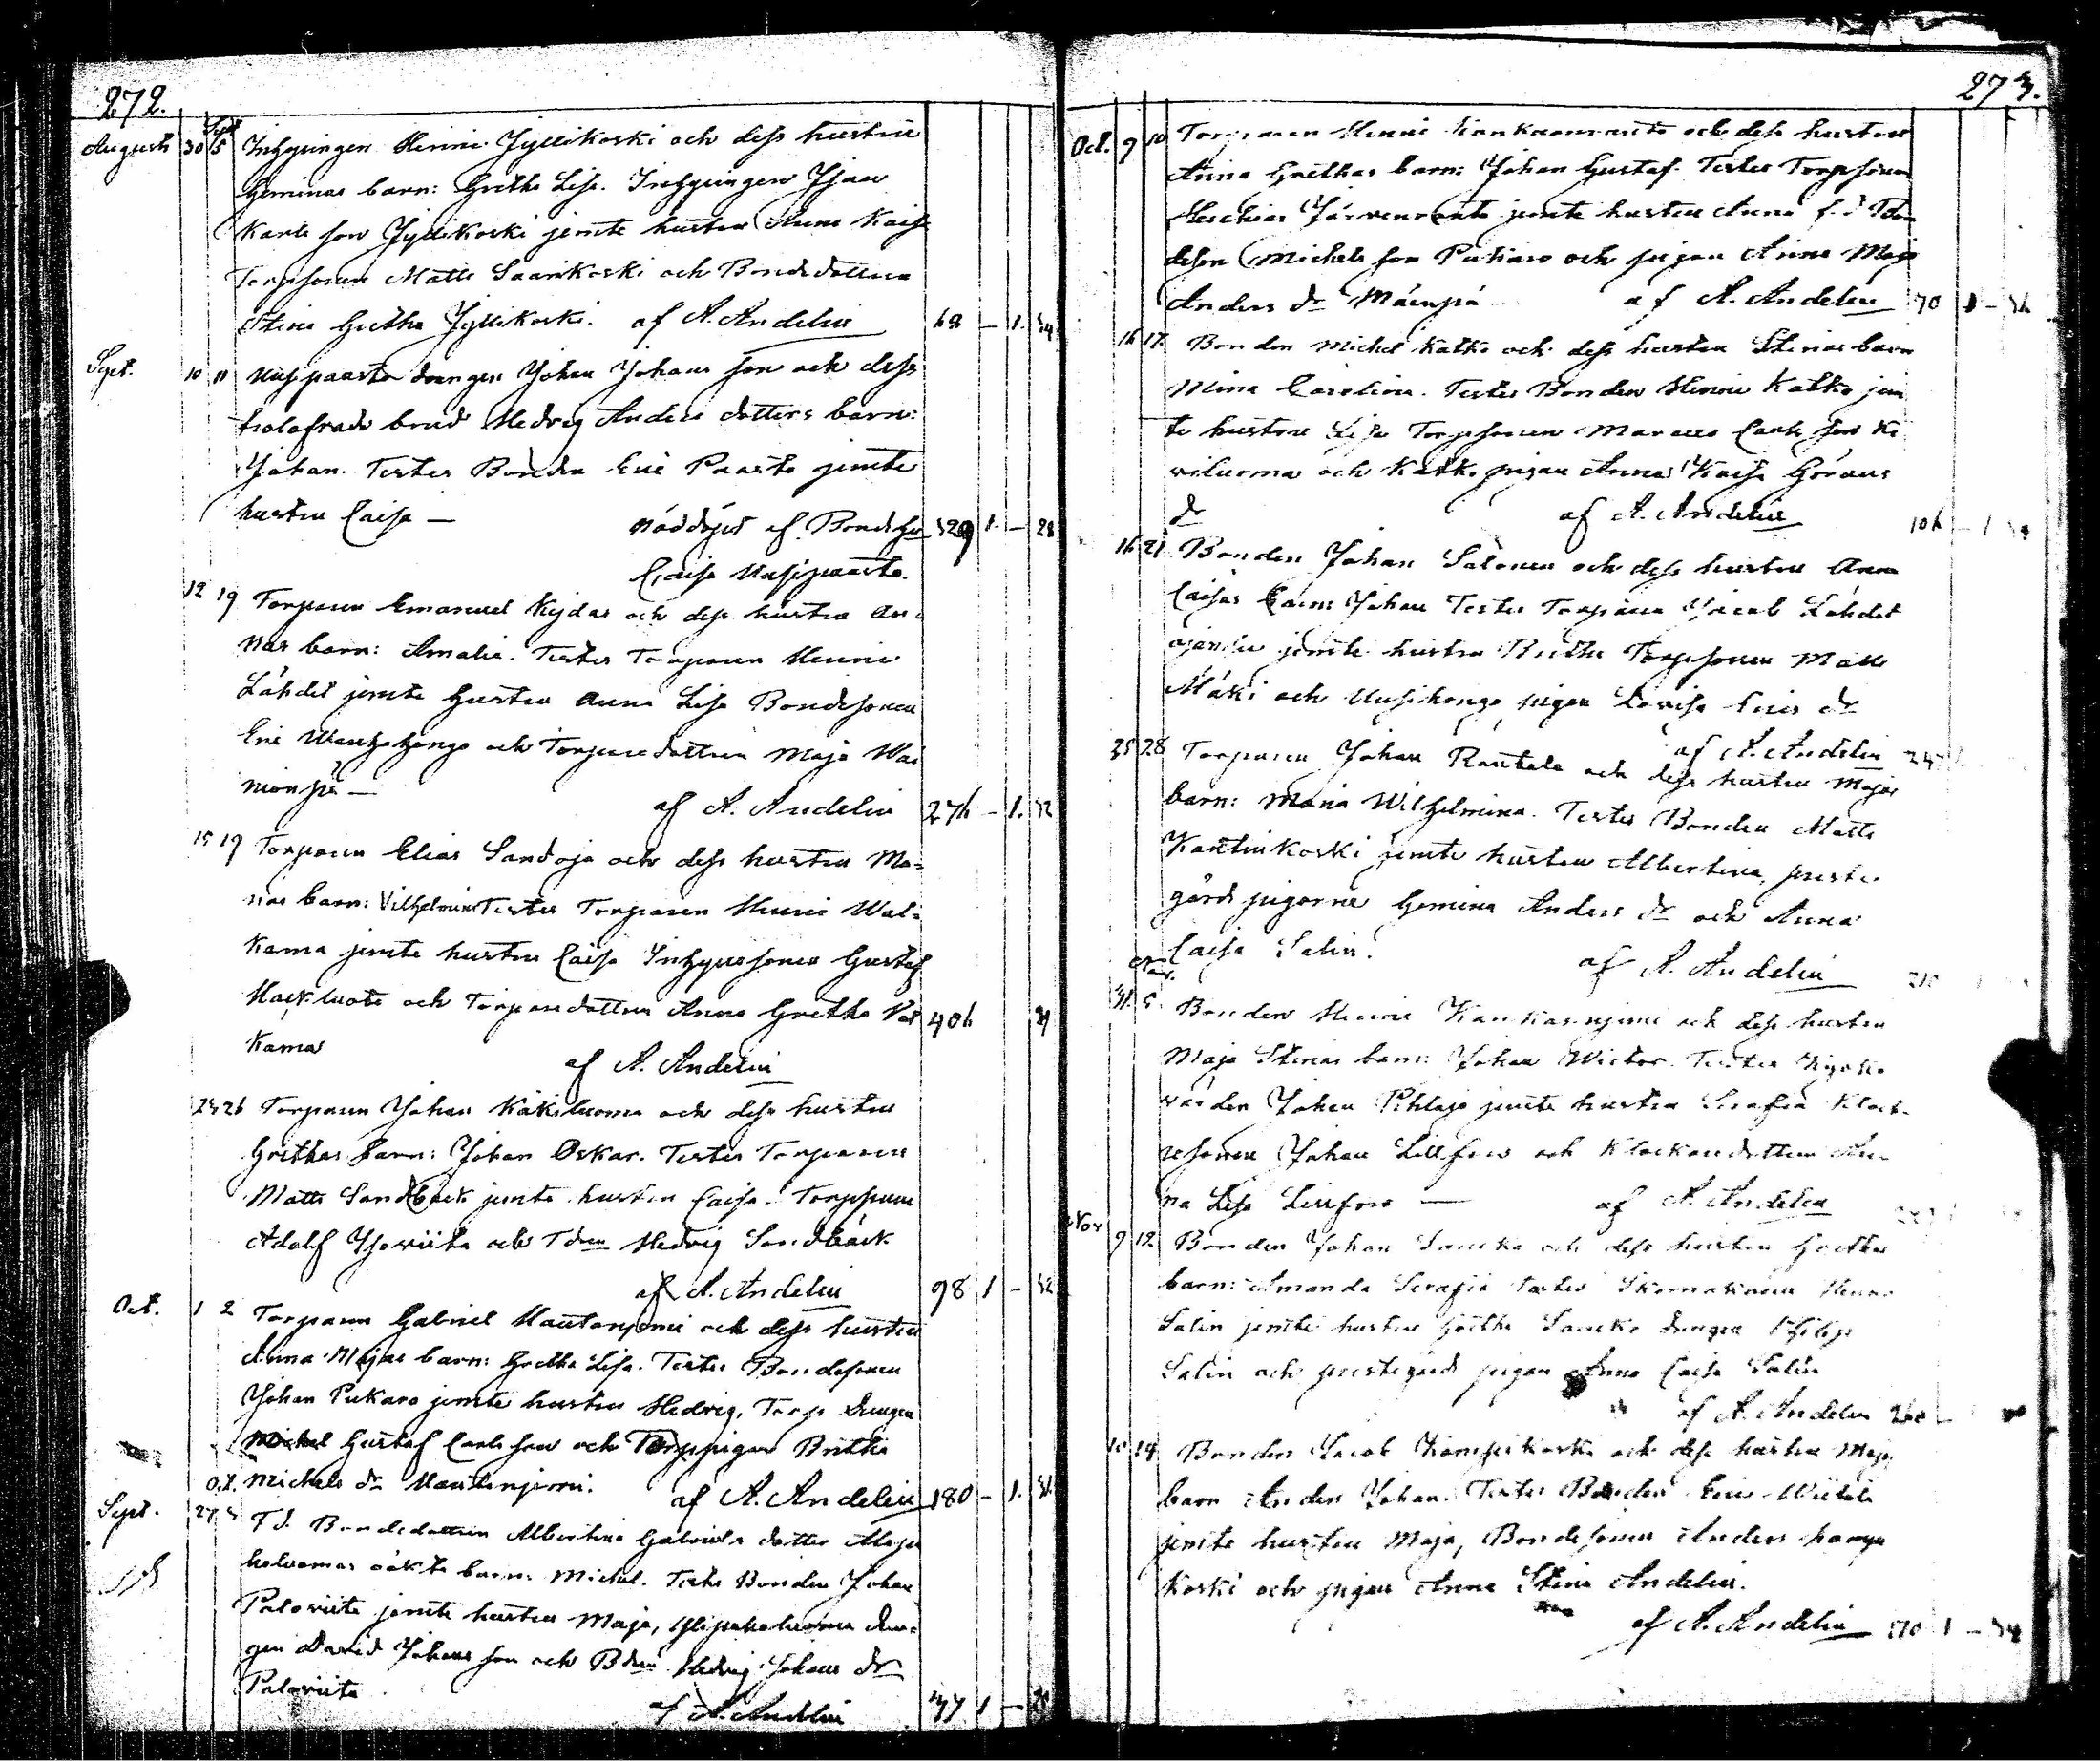 272.
Augusti 30 Sept 5 Inhysingen Henric Jyllikoski och dess hustru
Geminas barn: Gretha Lisa. Inhysingen Isaac
Karls son Jyllikoski jemte hustru Anna Kaisa
Torpsonen Matts Saarikoski och Bondedottren
Stina Gretha Jyllikoski. af A. Andelin 1.
Sept. 10 11 Uusipaasto drengen Johan Johans son och dess
trolofvade brud Hedvig Anders dotters barn:
Johan. Testes Bonden Eric Paasto jemte
hustru Caisa — nöddöpt af Bondehu 329 1. — 28
Caisa Uusipaasto.
12 19 Torparen Emanuel Kydas och dess hustru An=
nas barn: Amalia. Testes Torparen Henric
Lähdet jemte hustru Anna Lisa Bondesonen
Eric Wanhahongo och Torparedottren Maja Wai
nionpä — af A. Andelin 276 — 1. 32
15 19 Torparen Elias Sandoja och dess hustru Ma=
rias barn: Vilhelmina Testes Torparen Henric Wal=
kama jemte hustru Caisa Inhysesonen Gustaf
och Torparedottren Anna Gretha Val 406
kama
af A. Andelin
24 26 Torparen Johan Käkiluoma och dess hustru
Grethas barn: Johan Oskar. Testes Torparen
Matts Sandback jemte hustru Caisa. Torparen
Adolf Isoviita och Tdren Hedvig Sandbäck
af A. Andelin 98 1 — 32
Oct. 1 2 Torparen Gabriel Hautanjemi och dess hustru
Anna Majas barn: Gretha Lisa. Testes Bondesonen
Johan Pukaro jemte hustru Hedvig, Torp drengen
Gustaf Carls son och Torppigan Britha
Michels dr Hautanjemi. af A. Andelin 180 — 1.
Sept. 27 Oct. Fd. Bondedottren Albertina Gabriels dotter
oäkta barn: Michel. Testes Bonden Johan
Paloviita jemte hustru Maja, dren=
gen David Johans son och Bdren Hedvig Johans dr
Paloviita
af A. Andelin 1 —
273.
Oct. 9 10 Torparen Henric och dess hustru
Anna Grethas barn: Johan Gustaf. Testes Torpsonen
Heschias Järvenranta jemte hustru Anna
Michels son Pukaro och pigan Anna Maja
Anders dr Mäenpä af A. Andelin 70
16 17 Bonden Michel Katko och dess hustru Stinas barn
Mina Carolina. Testes Bonden Henric Katko jem
te hustru Lisa Torpsonen Marcus Carls son Ki
viluoma och Katko pigan Anna Kaisa Görans
dr af A. Andelin 106 — 1
16 21 Bonden Johan Salonen och dess hustru Anna
Caisas barn: Johan Testes Torparen Jacob Lähdet
jemte hustru Britha Torpsonen Matts
Mäki och Uusihongo pigan Lovisa Erics dr
af A. Andelin
25 28 Torparen Johan Rantala och dess hustru Majas
barn: Maria Wilhelmina. Testes Bonden Matts
Kantinkoski jemte hustru Albertina, preste
gårds pigorne Gemina Anders dr och Anna
Caisa Salin.
af A. Andelin
31 Nov. 5 Bonden Henric Kankaanjemi och dess hustru
Maja Stinas barn: Johan Wictor. Testes Kyrko
värden Johan Pihlaja jemte hustru Serafia Klock-
resonen Johan Lillfors och Klockaredottren An-
na Lisa Lillfors — af A. Andelin
Nov 9 12 Bonden Johan Saucko och dess hustru Grethas
barn: Amanda Serafia Testes Skomakaren Henric
Salin jemte hustru Gretha Saucko drengen Philip
Salin och prestegårds pigan Anna Caisa Salin
af A. Andelin
10 14 Bonden Jacob Kampikoski och dess hustru Majas
barn Anders Johan. Testes Bonden Eric Wiitala
jemte hustru Maja, Bondesonen Anders Kampi
koski och pigan Anna Stina Andelin.
af A. Andelin 1 —